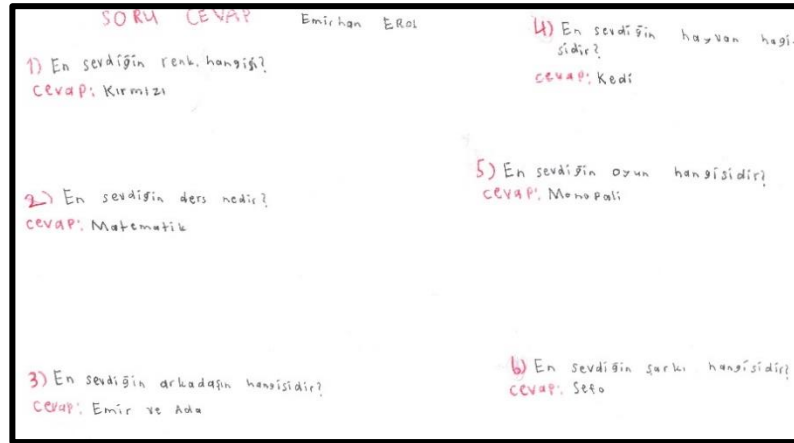 SORU CEVAP Emirhan EROL
1) En sevdiğin renk, hangisi?
cevap: Kırmızı
2) En sevdiğin ders nedir?
cevap: Matematik
3) En sevdiğin arkadaşın hangisidir?
cevap: Emir ve Ada
4) En sevdiğin hayvan hagi-
sidir?
cevap: Kedi
5) En sevdiğin oyun hangisidir?
cevap: Monopali
6) En sevdiğin şarkı hangisidir?
cevap: Sefo